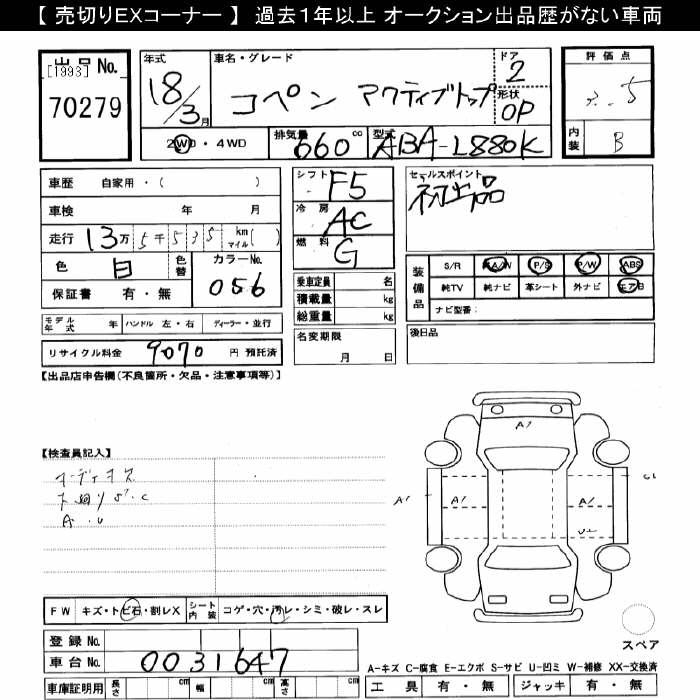 【 売切りEXコーナー 】 過去1年以上 オークション出品歴がない車両
出品No.
[1993]
70279
年式
18/3月
車名・グレード
コペン アクティブトップ
ドア
2
形状
OP
2WD・4WD
排気量
660cc
型式
ABA-L880K
評価点
5
内装
B
車歴 自家用・( )
車検 年 月
走行 13万5千535 km マイル( )
色 白 色替
カラーNo.
056
保証書 有・無
モデル年式 年 ハンドル 左・右 ディーラー・並行
リサイクル料金 9070 円 預託済
シフト F5
冷房 AC
燃料 G
乗車定員 名
積載量 kg
総重量 kg
名変期限
月 日
セールスポイント
初出品
装備品
S/R 純A/W P/S P/W ABS
純TV 純ナビ 革シート 外ナビ エアB
ナビ型番:
後日品
【出品店申告欄(不良箇所・欠品・注意事項等)】
【検査員記入】
オーディオス
下廻りS'.C
A.U
A1
A1
A1
A1
G1
FW キズ・トビ石・割レX シート内装 コゲ・穴・汚レ・シミ・破レ・スレ
登録No.
車台No. 0031647
車庫証明用 長さ cm 幅 cm 高さ cm
スペア
A-キズ C-腐食 E-エクボ S-サビ U-凹ミ W-補修 XX-交換済
工具 有・無 ジャッキ 有・無